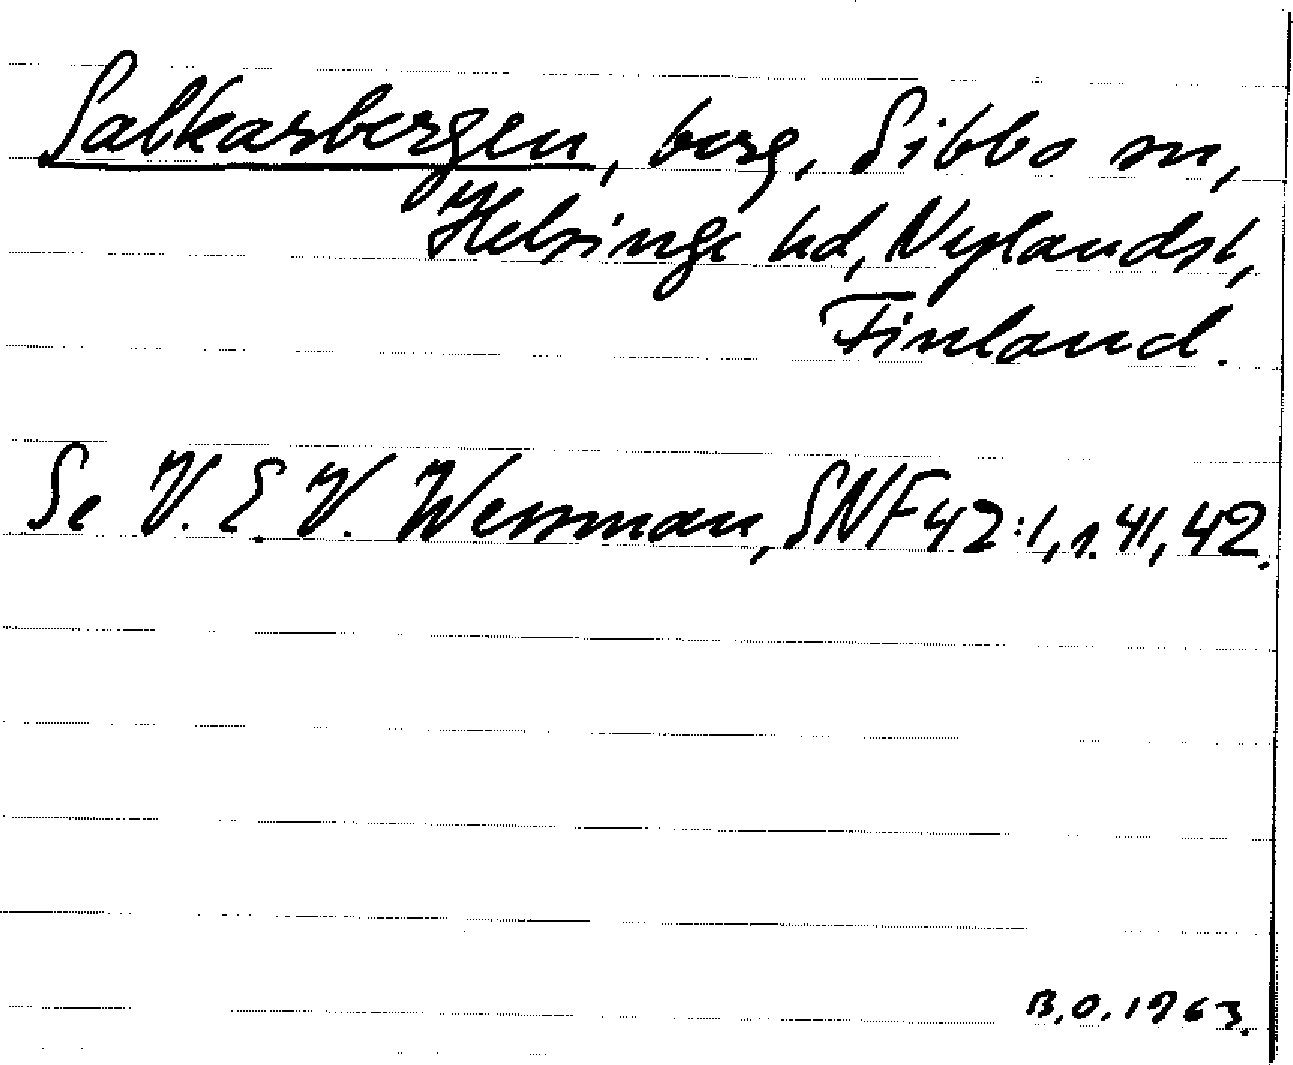 Salkarbergen, berg, Sibbo sn,
Helsinge hd, Nylands l,
Finland.
Se V. E. V. Wessman, SNF 42:1, s. 41, 42.
B.O. 1963.